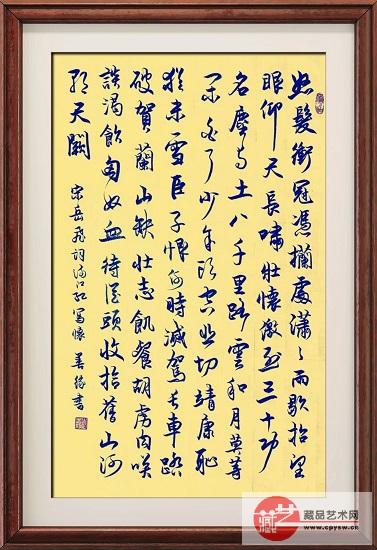 怒髮衝冠憑攔處瀟〻雨歇抬望
眼仰天長嘯壯懷激烈三十功
名塵与土八千里路雲和月莫等
閑白了少年頭空悲切靖康恥
猶未雪臣子恨何時滅駕長車踏
破賀蘭山缺壯志飢餐胡虜肉笑
談渴飲匈奴血待從頭收拾舊山河
朝天闕
宋岳飛詞滿江紅寫懷 善書
藏艺
藏品艺术网
www.cpysw.cn